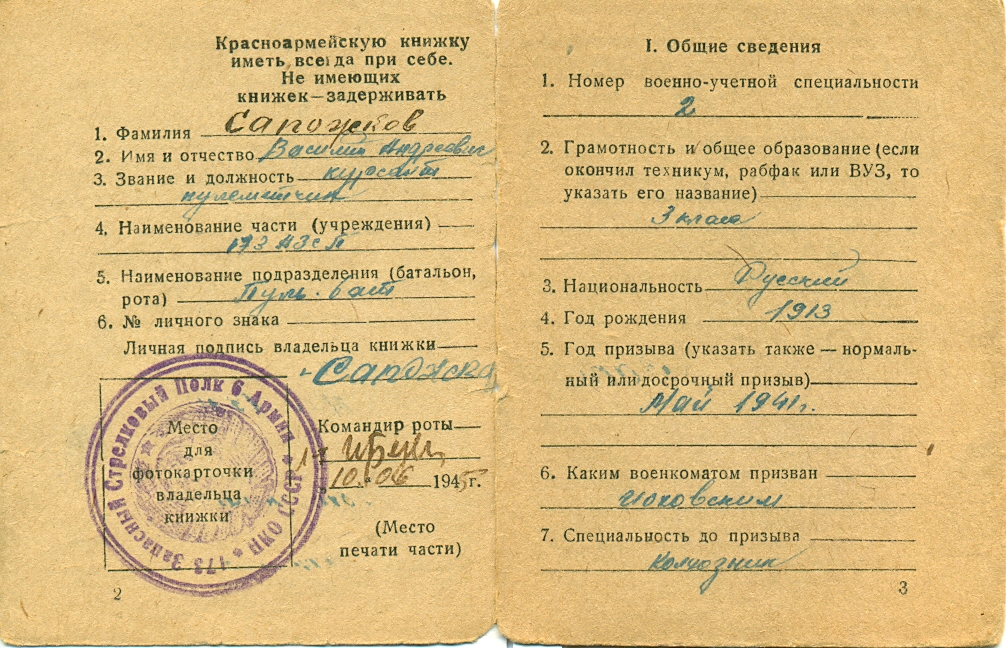 Красноармейскую книжку
иметь всегда при себе.
Не имеющих
книжек—задерживать
1. Фамилия Сапожков
2. Имя и отчество Василий Андреевич
3. Звание и должность курсант
пулеметчик
4. Наименование части (учреждения)
173 АЗСП
5. Наименование подразделения (батальон,
рота) Пуль. бат
6. № личного знака
Личная подпись владельца книжки
Сапожков
Место
для
фотокарточки
владельца
книжки
173 Запасный Стрелковый Полк 6 Армии
НКО СССР
Командир роты
10.06 1945г.
(Место
печати части)
2
I. Общие сведения
1. Номер военно-учетной специальности
2
2. Грамотность и общее образование (если
окончил техникум, рабфак или ВУЗ, то
указать его название)
3 класа
3. Национальность Русский
4. Год рождения 1913
5. Год призыва (указать также — нормаль-
ный или досрочный призыв)
Май 1941г.
6. Каким военкоматом призван
7. Специальность до призыва
колхозник
3